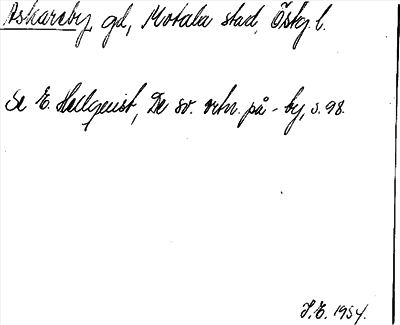 Askaraby, gd, Motala stad, Östg. l.
Se E. Hellquist, De sv. ortn. på -by, s. 98.
J.E. 1954.